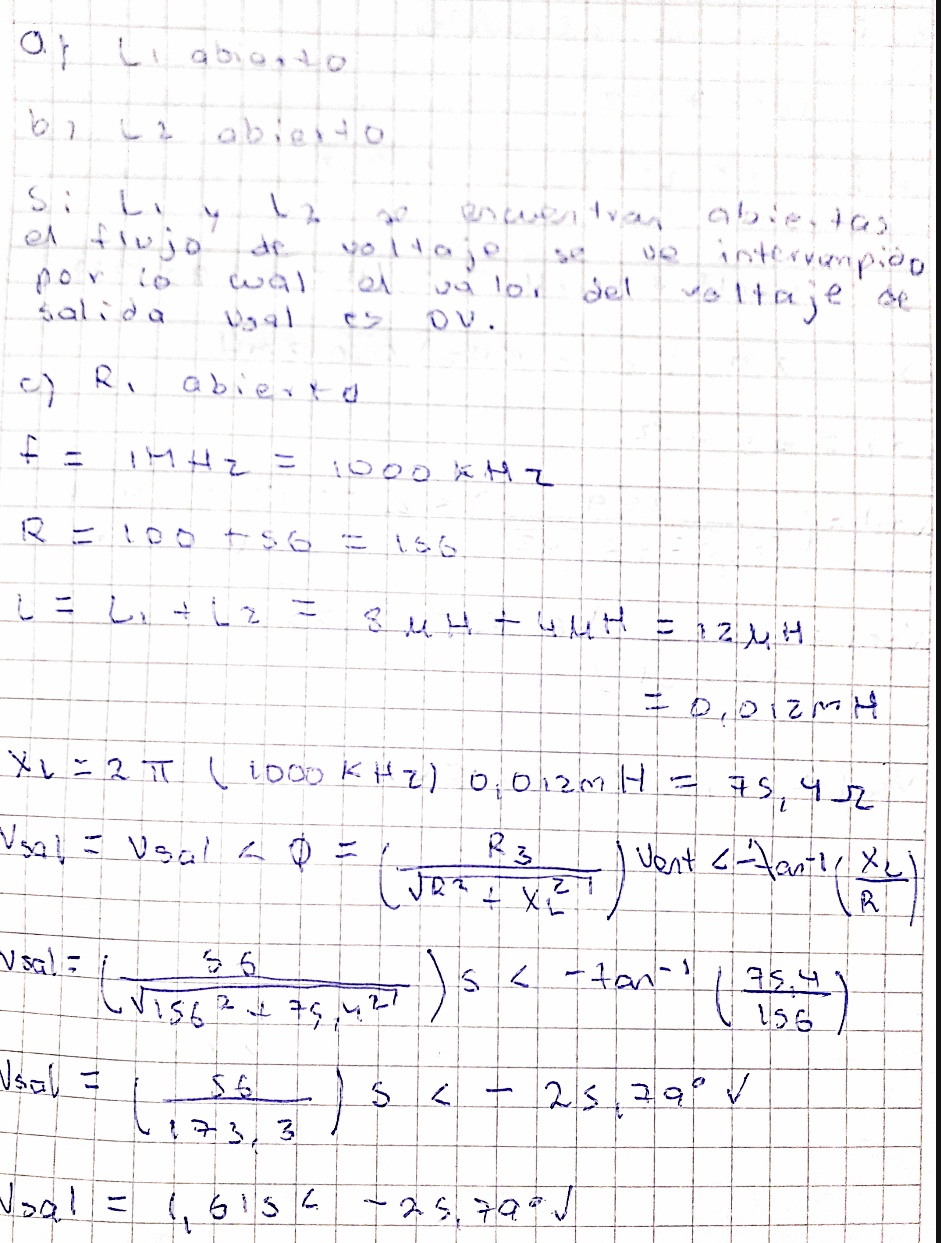 a) L1 abierto
b) L2 abierto
Si L1 y L2 se encuentran abiertas
el flujo de voltaje se ve interrumpido
por lo cual el valor del voltaje de
salida Vsal es 0V.
c) R1 abierto
f = 1MHz = 1000 KHz
R = 100 + 56 = 156
L = L1 + L2 = 8 μH + 4 μH = 12 μH
= 0,012mH
XL = 2 π (1000 KHz) 0,012mH = 75,4 Ω
Vsal = Vsal < Φ = (R3 / √(R² + XL²)) Vent < -tan⁻¹ (XL / R)
Vsal = (56 / √(156² + 75,4²)) 5 < -tan⁻¹ (75,4 / 156)
Vsal = (56 / 173,3) 5 < - 25,79° V
Vsal = 1,615 < -25,79° V